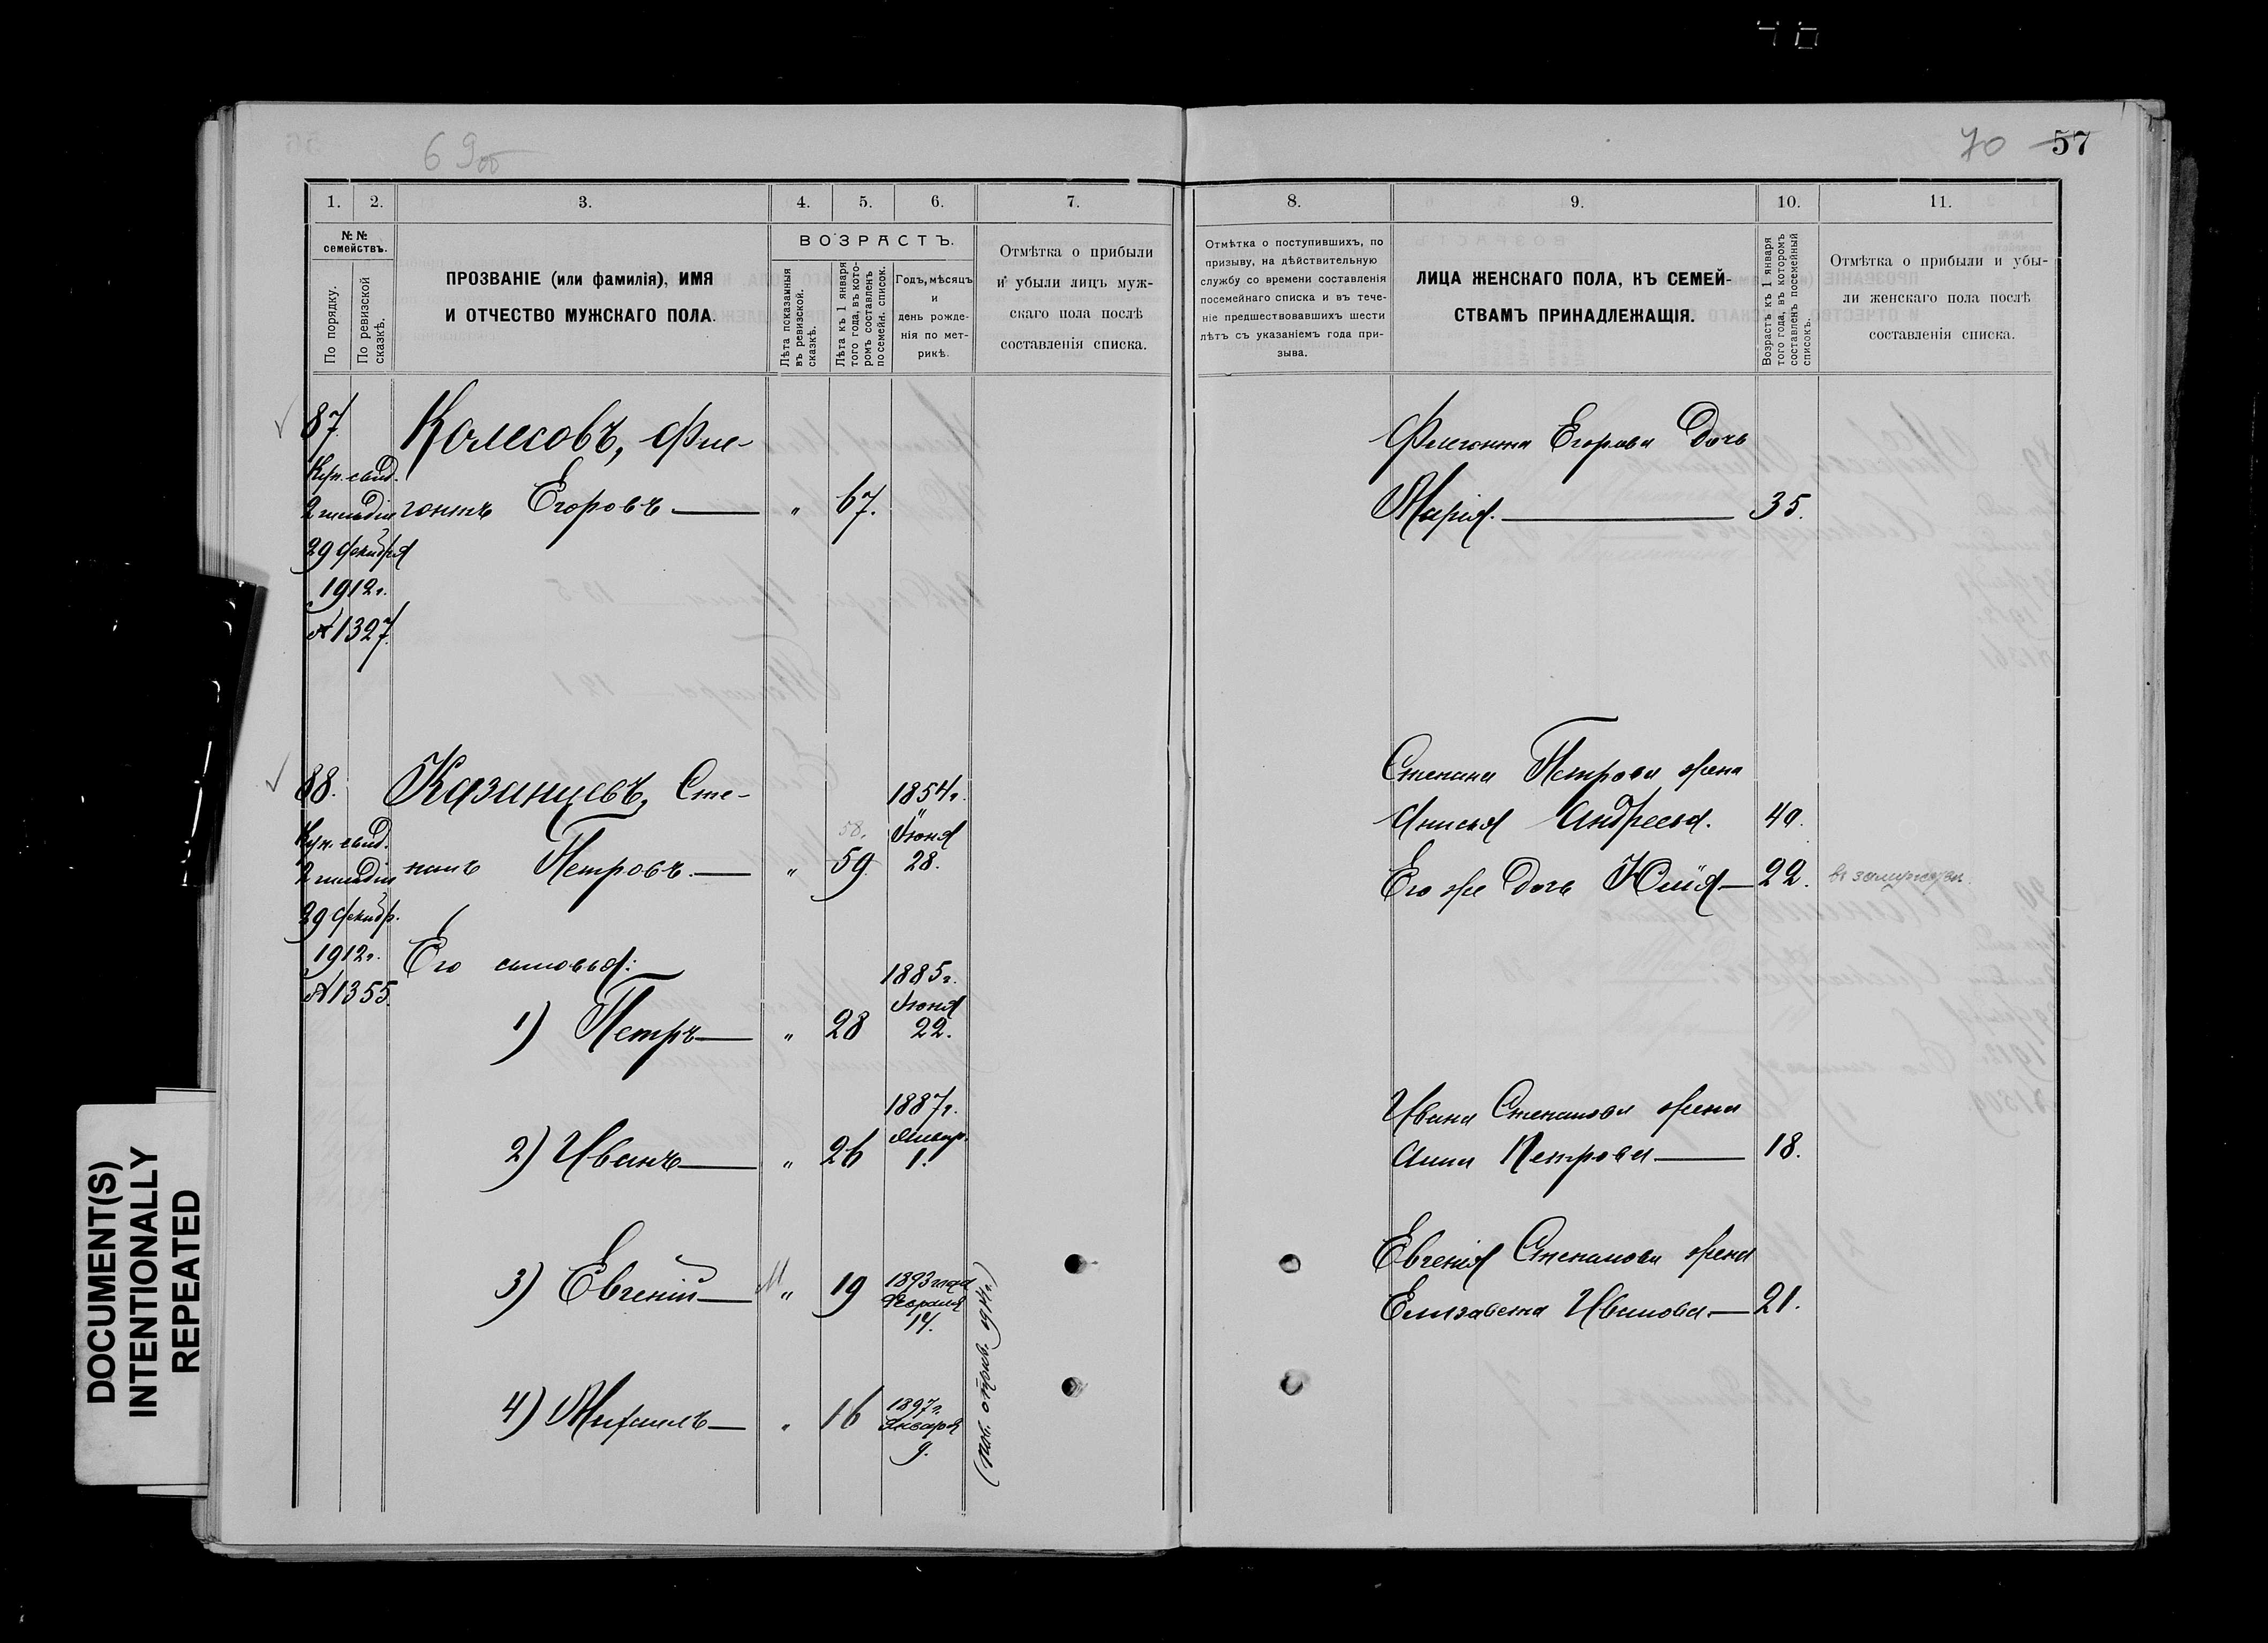 46
69об
70 57
1. 2. 3. 4. 5. 6. 7.
№ № семействъ.
По порядку.
По ревизской сказкѣ.
ПРОЗВАНІЕ (или фамилія), ИМЯ
И ОТЧЕСТВО МУЖСКАГО ПОЛА.
ВОЗРАСТЪ.
Лѣта показанныя
въ ревизской
сказкѣ.
Лѣта къ 1 января
того года, въ кото-
ромъ составленъ
посемейн. список.
Годъ, мѣсяцъ
и
день рожде-
нія по мет-
рикѣ.
Отмѣтка о прибыли
и убыли лицъ муж-
скаго пола послѣ
составленія списка.
87.
Куп. свид.
2 гильдіи
29 декабря
1912г.
№1327.
Колесовъ, Фле-
гонтъ Егоровъ — " 67.
88.
Куп. свид.
2 гильдіи
29 декабр.
1912г.
№1355.
Казанцевъ, Сте-
панъ Петровъ. — " 59. 58.
1854г.
Іюня
28.
Его сыновья:
1) Петръ — " 28
1885г.
Іюня
22.
2) Иванъ — " 26
1887г.
Январ.
1.
3) Евгеній — " 19
1893 года
Февраля
17.
4) Михаилъ — " 16
1897г.
Января
9.
8. 9. 10. 11.
Отмѣтка о поступившихъ, по
призыву, на дѣйствительную
службу со времени составленія
посемейнаго списка и въ тече-
ніе предшествовавшихъ шести
лѣтъ съ указаніемъ года при-
зыва.
ЛИЦА ЖЕНСКАГО ПОЛА, КЪ СЕМЕЙ-
СТВАМЪ ПРИНАДЛЕЖАЩІЯ.
Возрастъ къ 1 января
того года, въ которомъ
составленъ посемейный
списокъ.
Отмѣтка о прибыли и убы-
ли женскаго пола послѣ
составленія списка.
Флегонта Егорова дочь
Марія. — 35.
Степана Петрова жена
Анисья Андреева. 49.
Его же дочь Юлія — 22. въ замужеств.
Ивана Степанова жена
Анна Петрова — 18.
Евгенія Степанова жена
Елизавета Иванова. — 21.
DOCUMENT(S)
INTENTIONALLY
REPEATED